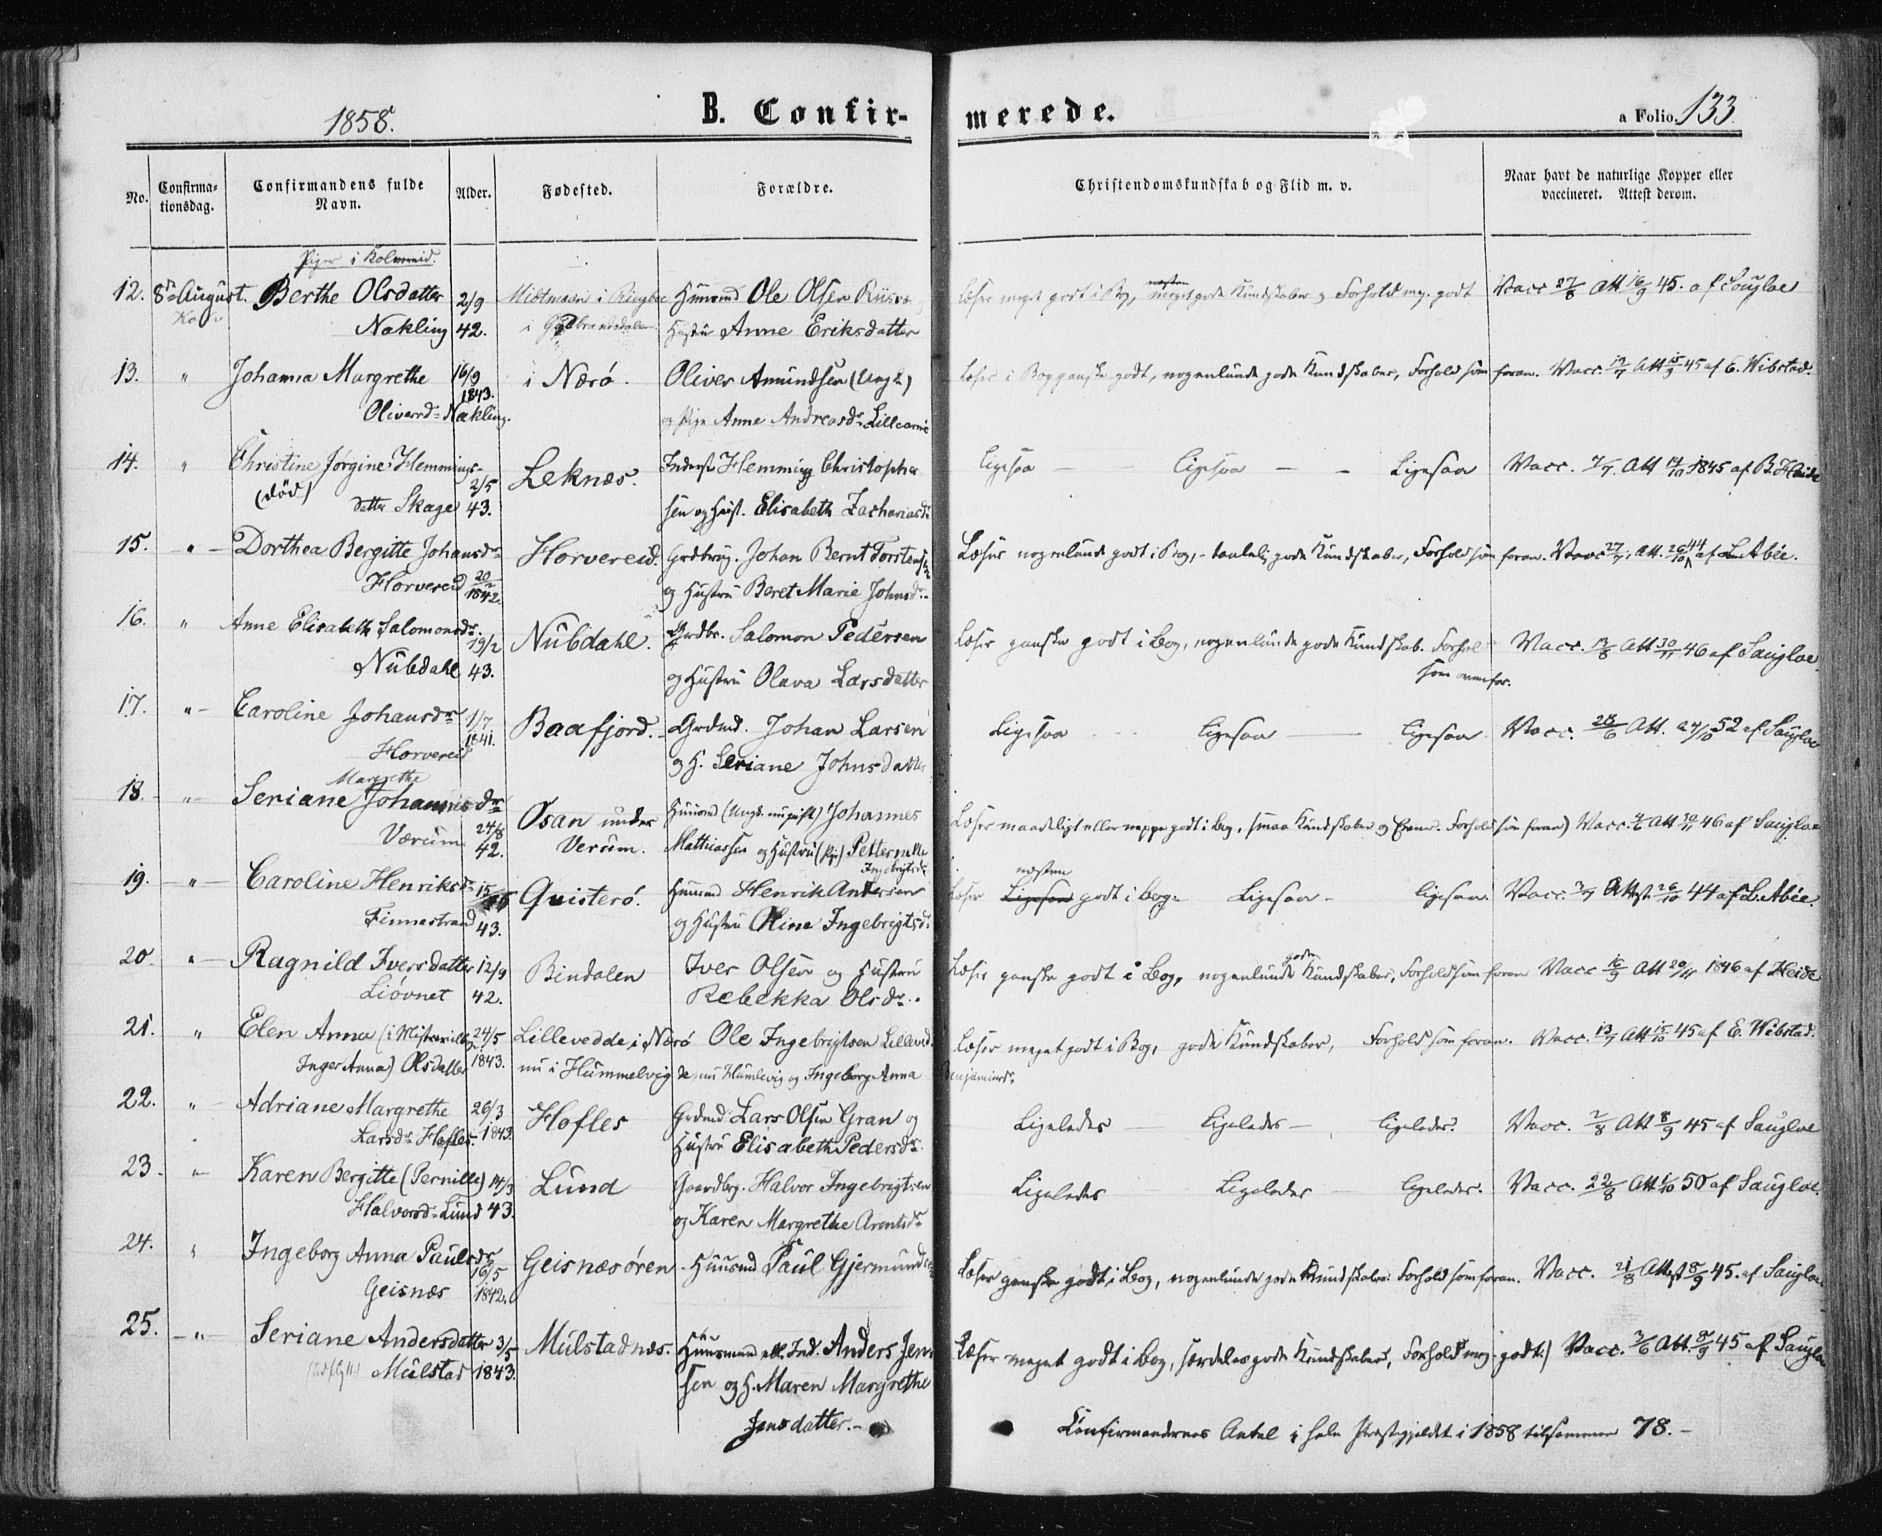 1858.
B. Confir-
merede.
a Folio. 133
No.
Confirma-
tionsdag.
Confirmandens fulde
Navn.
Alder.
Fødested.
Forældre.
Christendomskundskab og Flid m. v.
Naar havt de naturlige Kopper eller
vaccineret. Attest derom.
Piger i Kolvereid.
12. 8de August. Berthe Olsdatter 2/9 i Ringboe Huusmd Ole Olsen Læser meget godt i Bog, næsten meget gode Kundskaber og Forhold meg. godt Vacc 27/8 Att 16/9 45. af Sougloe
Nakling 42. i Gudbrandsdalen Hustru Anne Eriksdatter
13. " Johanna Margrethe 16/9 i Nærø. Oliver Amundsen (Ungk) Læser i Bog ganske godt, nogenlunde gode Kundskaber, Forhold som foran. Vacc. 13/7 Att 15/9 45 af E. Wibstad.
1843.
Oliversd= Nakling. og Pige Anne Andreasdr
14. " Christine Jørgine Hemmings- Leknæs. Inderst Hemming Christopher Ligesaa — Ligesaa — — Ligesaa Vacc. 7/7 Att 14/10 1845 af B. Heide
(død) datter Skage 2/5 43. sen og Hust. Elisabeth Zachariasdr
15. " Dorthea Bergitte Johansdr Horvereid. Grdbrug. Johan Bernt Torstensen Læser nogenlunde godt i Bog, - taalelig gode Kundskaber, Forhold som foran. Vacc 27/7, Att. 26/10 44 af L. Abée.
Horvereid 20/2 1842. og Hustru Beret Marie Johnsdr
16. " Anne Elisabeth Salomonsdr. 19/2 Nubdahl. Grdbr. Salomon Pedersen Læser ganske godt i Bog, nogenlunde gode Kundskab. Forhold Vacc. 13/8 Att 30/11 46 af Saugloe
som ovenfor.
Nubdahl 43. og Hustru Olava Larsdatter
17. " Caroline Johansdr 1/7 Baafjord. Grdmd. Johan Larsen Ligesaa Ligesaa — Ligesaa Vacc. 28/6 Att. 27/10 52 af Saugloe
Horvereid 1841. og H. Seriane Johnsdatter
Margrethe
18. " Seriane Johannisdr Osan under Huusmd (Ungk. ugift) Johannes Læser maadeligt eller neppe godt i Bog, smaa Kundskaber og Evner. Forhold som foran) Vacc. Att 30/11 46 af Saugloe
Værum 24/8 42. Verum. Mathiassen og Hustru (Pige) Petternelle
Ingebrigtsdr
19. " Caroline Henriksdr 15/ Quisterø. Huusmd Henrik Andersen Læser Ligesaa næsten godt i Bog Ligesaa — Ligesaa. Vacc. 3/7 Attest 26/10 44 af L. Abée.
Finnestrand 43. og Hustru Oline Ingebrigtsdr
20. " Ragnild Iversdatter 12/9 Bindalen Iver Olsen og Hustru Læser ganske godt i Bog, nogenlunde gode Kundskaber, Forhold som foran Vacc 16/9 Att 20/11 1846 af Heide
Liøvnet 42. Rebekka Olsdr.
21. " Elen Anna (i Ministerialb. 24/5 Lillevedde, i Nærø Ole Ingebrigtsen Lilleved- Læser meget godt i Bog, gode Kundskaber, Forhold som foran. Vacc. 13/7 Att 15/10 45 af E. Wibstad.
Inger Anna) Olsdatter 1843. nu i Hummelvig de, nu Humlevig og Ingeborg Anna Benjaminsdr
22. " Adriane Margrethe 26/3 Hofles Grdmd Lars Olsen Gran og Ligeledes Ligeledes — ligeledes. Vacc. 2/8 Att 8/9 45 af Saugloe
Larsdr Hofles. 1843. Hustru Elisabeth Pedersdr.
23 " Karen Bergitte (Pernille) 14/3 Lund Gaardbrg. Halvor Ingebrigtsen Ligeledes Ligeledes — ligeledes. Vacc. 22/8 Att 50 af Saugloe.
Halvorsd= Lund 43. og Karen Margrethe Arentsdr
24. " Ingeborg Anna Paulsdr Geisnæsøren Huusmd Paul Gjermundsen Læser ganske godt i Bog, nogenlunde gode Kundskaber Forhold som foran. Vacc. 21/8 Attest 8/9 45. af Saugloe
Geisnæs 16/5 1842.
25. " Seriane Andersdatter 3/5 Mulstadnæs. Huusmand ell. Ind. Anders Jen- Læser meget godt i Bog, særdeles gode Kundskaber, Forhold meg. godt.) Vacc. 3/6 Att. 8/9 45 af Saugloe
Mulstad 1843. sen og H. Maren Margrethe
Jensdatter. —
Confirmandernes Antal i hele Præstegjeldet i 1858 tilsammen 78. —